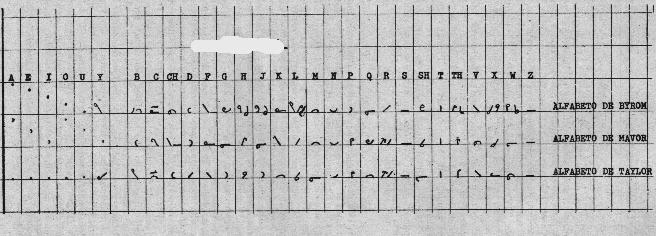 A E I O U Y B C CH D F G H J K L M N P Q R S SH T TH V X W Z
ALFABETO DE BYROM
ALFABETO DE MAVOR
ALFABETO DE TAYLOR